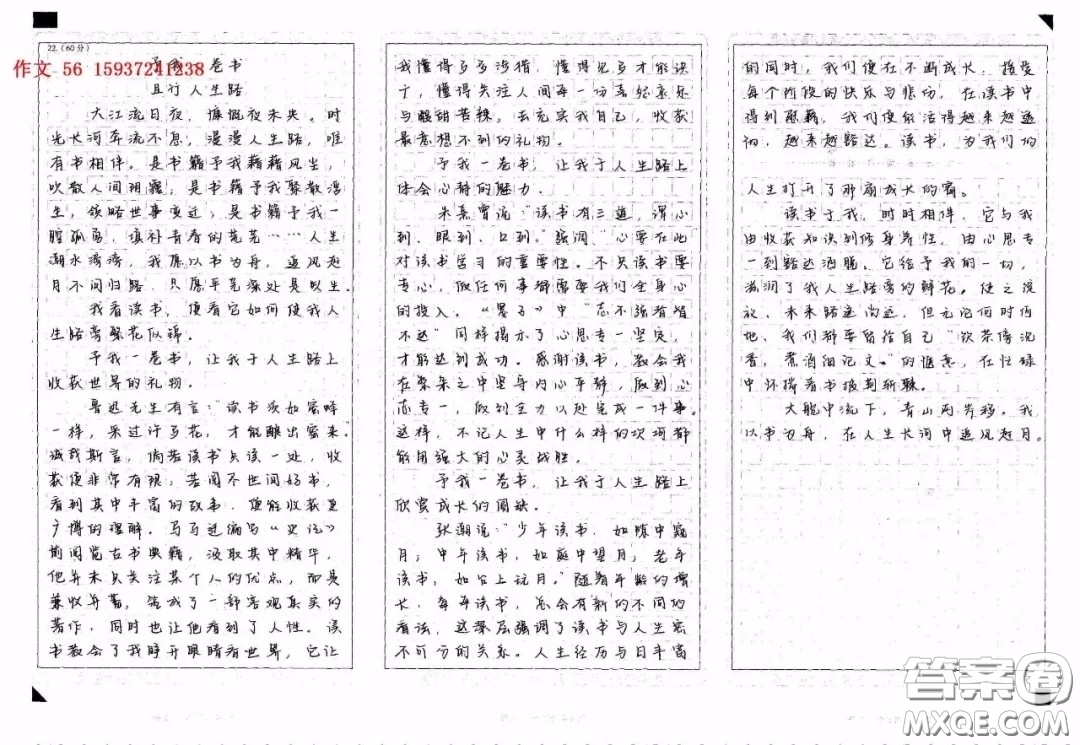 22.（60分）
作文 56 15937241238
予我一卷书
且行人生路
大江流日夜，慷慨夜未央。时
光长河奔流不息，漫漫人生路，唯
有书相伴。是书籍予我藉藉风尘，
吹散人间阴霾，是书籍予我聚散浮
生，领略世事变迁，是书籍予我一
腔孤勇，填补青春的荒芜……人生
潮水湾湾，我愿以书为舟，追风赶
月不问归路，只愿平芜深处是煦生。
我看读书，便看它如何使我人
生路旁繁花似锦。
予我一卷书，让我于人生路上
收获世界的礼物。
鲁迅先生有言：“读书须如蜜蜂
一样，采过许多花，才能酿出蜜来。
诚哉斯言，倘若读书只读一处，收
获便非常有限；若阅尽世间好书，
看到其中丰富的故事，便能收获更
广博的理解。司马迁编写《史记》
前阅览古书典籍，汲取其中精华，
他并未只关注某个人的优点，而是
兼收并蓄，完成了一部客观真实的
著作，同时也让他看到了人性。读
书教会了我睁开眼睛看世界，它让
我懂得多多涉猎，懂得见多才能识
广，懂得关注人间每一份喜怒哀乐
与酸甜苦辣，去充实我自己，收获
最意想不到的礼物。
予我一卷书，让我于人生路上
体会心静的魅力。
朱熹曾说：“读书有三道，谓心
到、眼到、口到。”强调“心要在此”
对读书学习的重要性。不只读书要
专心，做任何事都需要我们全身心
的投入，《墨子》中“志不强者智
不达”同样揭示了心思专一坚定，
才能达到成功。感谢读书，教会我
在紊杂之中坚守内心平静，做到心
志专一，做到全力以赴完成一件事。
这样，不论人生中什么样的坎坷都
能用强大的心灵战胜。
予我一卷书，让我于人生路上
欣赏成长的圆缺。
张潮说：“少年读书，如隙中窥
月；中年读书，如庭中望月；老年
读书，如台上玩月。”随着年龄的增
长，每年读书，总会有新的不同的
看法，这深层强调了读书与人生密
不可分的关系。人生经历与日丰富
的同时，我们便在不断成长，接受
每个阶段的快乐与悲伤，在读书中
得到慰藉，我们便能活得越来越通
透，越来越豁达。读书，为我们的
人生打开了那扇成长的窗。
读书于我，时时相伴，它与我
由收获知识到修身养性，由心思专
一到豁达洒脱。它给予我的一切，
滋润了我人生路旁的鲜花，使之绽
放，未来路途尚远，但无论何时何
地，我们都要留给自己“饮茶傍沈
香，煮酒细论文”的惬意，在忙碌
中怀揣着书披荆斩棘。
大舰中流下，青山两岸移。我
以书为舟，在人生长河中追风赶月。
答案圈
MXQE.COM